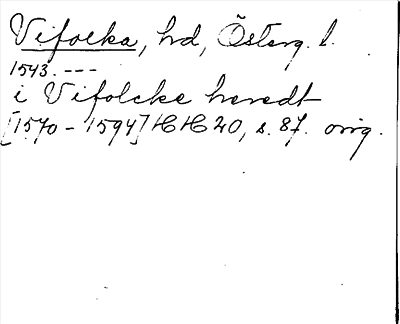 Vifolka, hd, Österg. l.
1543. ---
i Vifolcke heredt
[1570 - 1594] HH 20, s. 87. orig.